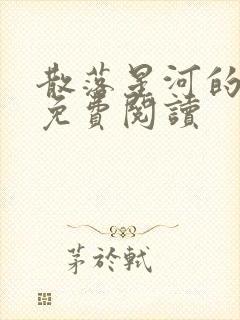 散落星河的
免費閱讀
茅於軾